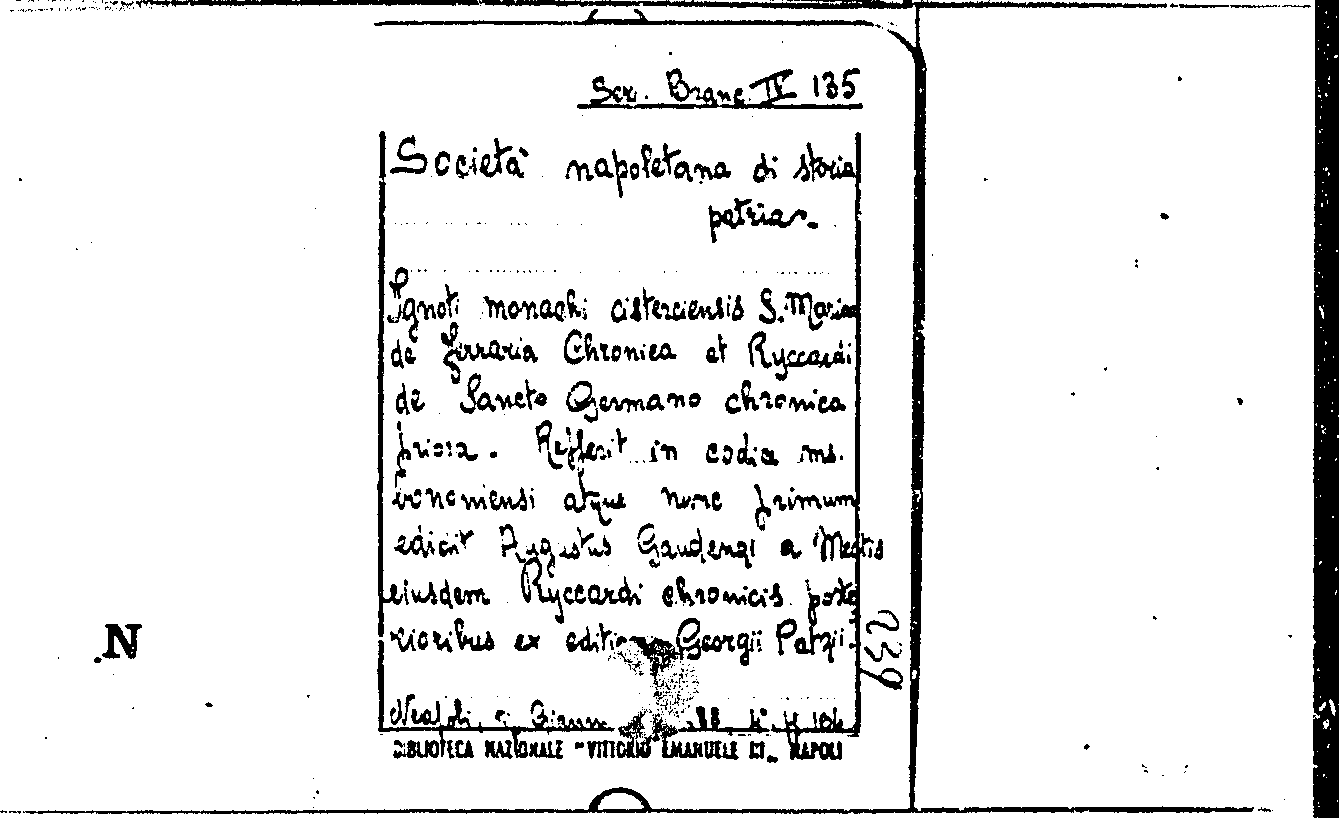 Scr. Branc. IV 135
Società napoletana di storia
patria.
Ignoti monachi cisterciensis S. Mariae
de Ferraria Chronica et Ryccardi
de Sancto Germano chronica
priora. Refferit in codice ms.
bononiensi atque nunc primum
edidit Augustus Gaudenzi a
eiusdem Ryccardi chronicis poste
rioribus ex editione Georgii
Neapoli,
BIBLIOTECA NAZIONALE "VITTORIO EMANUELE III" NAPOLI
239
N